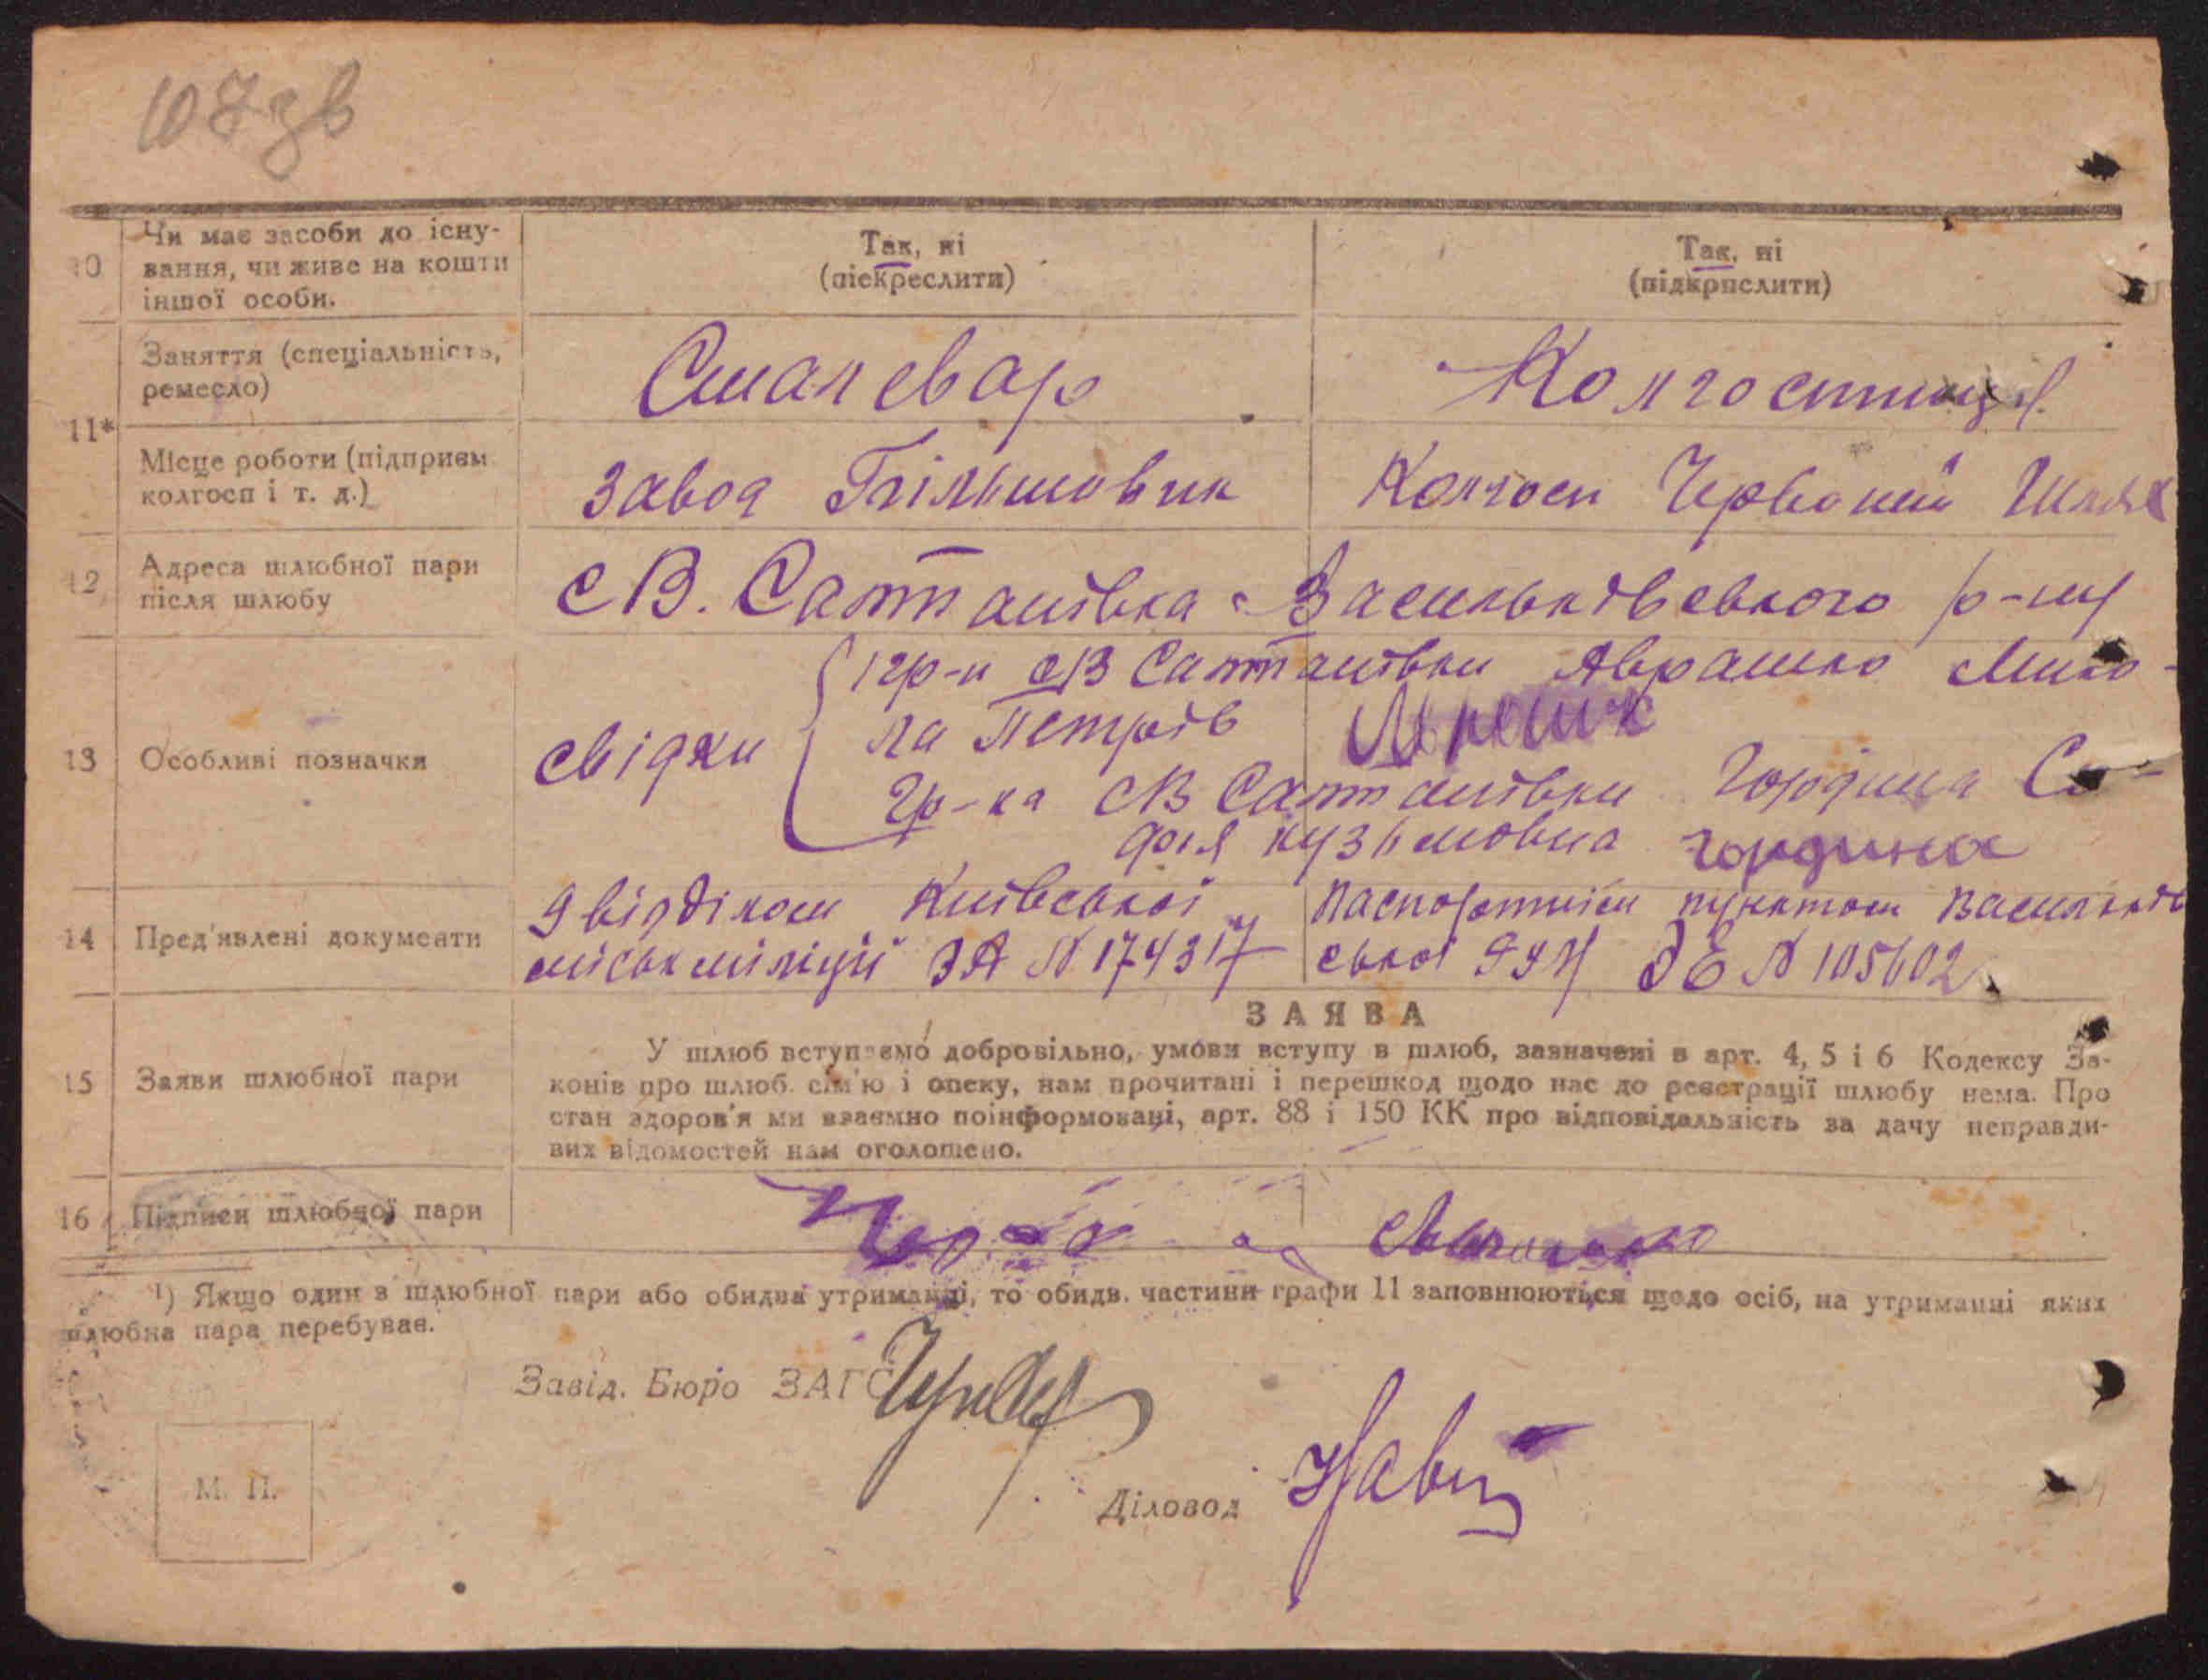 107 зв
10 Чи має засоби до існу-
вання, чи живе на кошти
іншої особи.
Так, ні
(піекреслити)
Так, ні
(підкрислити)
11*
Заняття (спеціальність,
ремесло)
Сталевар
Колгоспниця
Місце роботи (підприєм
колгосп і т. д.)
завод Більшовик
Колгосп Червоний Шлях
12 Адреса шлюбної пари
після шлюбу
с В. Салтанівка Васильківського р-ну
13 Особливі позначки
свідки
гр-н с В Салтанівки Аврашко Мико-
ла Петров
гр-ка с В Салтанівки Гордина Со-
фія Кузьмовна гордина
14 Пред'явлені документи
9 відділом Київської
міськміліції ЗА N 174317
Паспортнім пунктом Васильків
ської ДЕ N 105602
15 Заяви шлюбної пари
ЗАЯВА
У шлюб вступаємо добровільно, умови вступу в шлюб, зазначені в арт. 4, 5 і 6 Кодексу За-
конів про шлюб. сім'ю і опеку, нам прочитані і перешкод щодо нас до реєстрації шлюбу нема. Про
стан здоров'я ми взаємно поінформовані, арт. 88 і 150 КК про відповідальність за дачу неправди-
вих відомостей нам оголошено.
16 Підписи шлюбної пари
¹) Якщо один з шлюбної пари або обидва утриманці, то обидв. частини графи 11 заповнюються щодо осіб, на утриманні яких
шлюбна пара перебуває.
Завід. Бюро ЗАГС
Діловод
М. П.